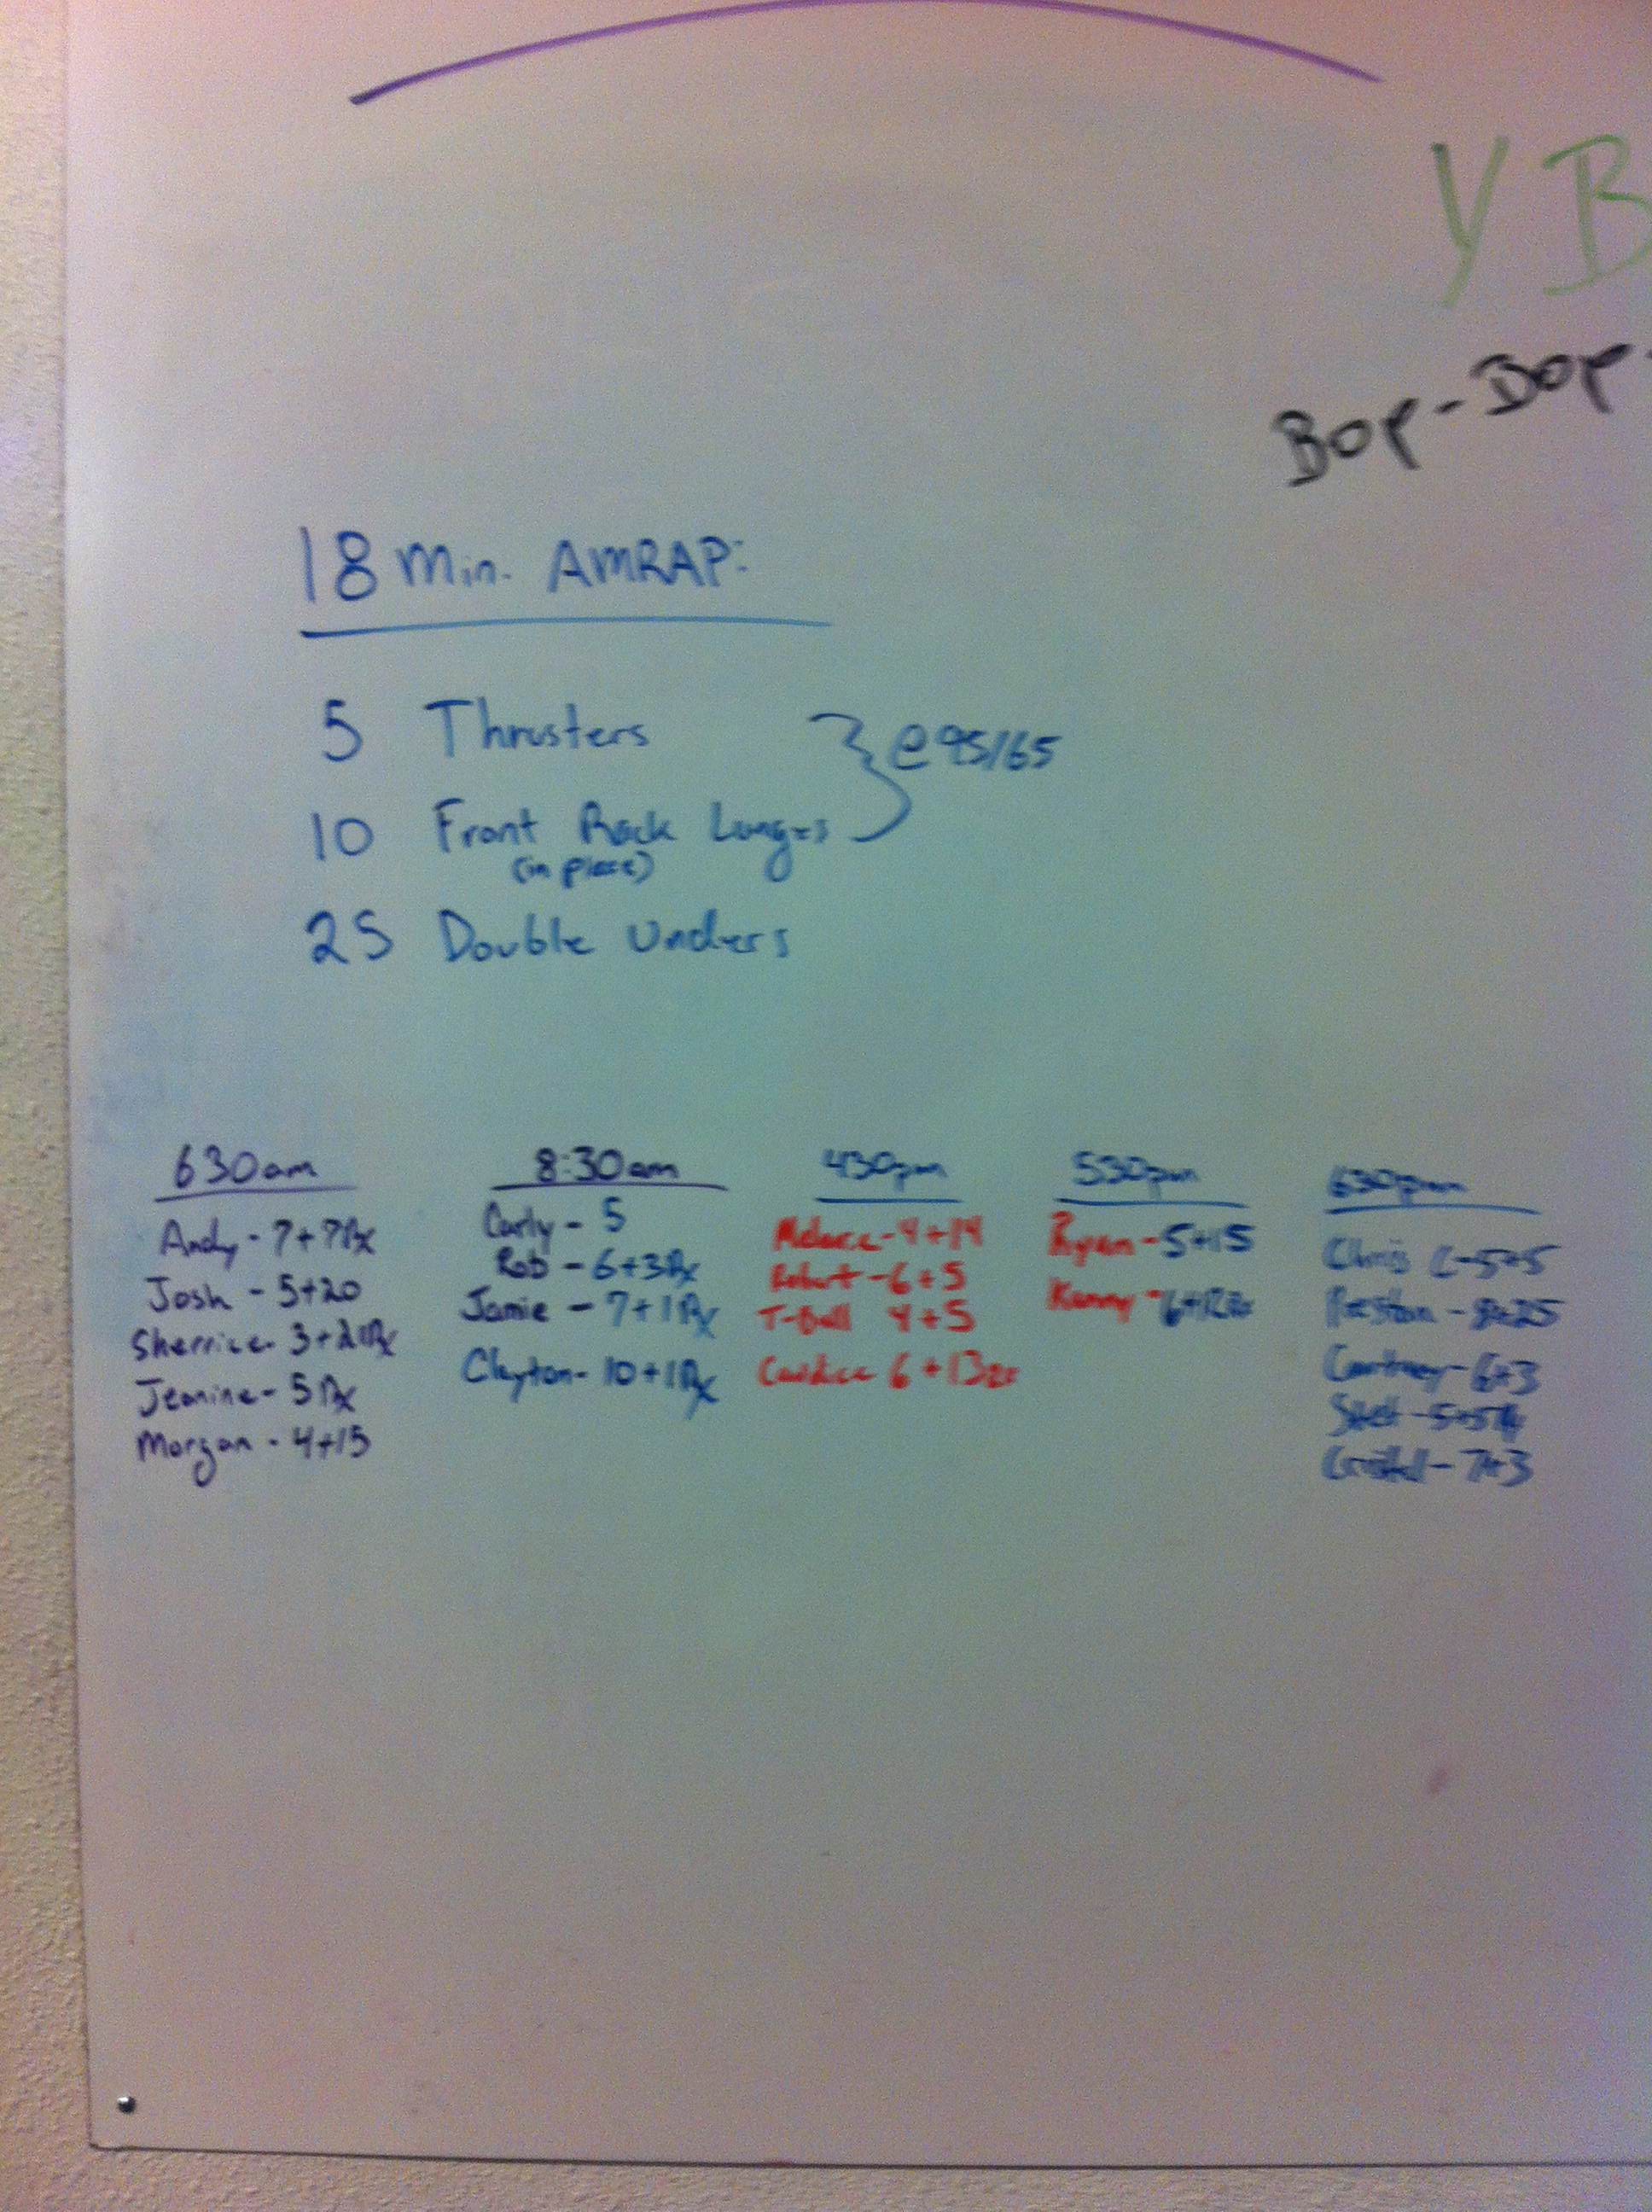 Y B
Bop-Bop-
18 Min. AMRAP:
5 Thrusters
@ 95/65
10 Front Rack Lunges
(in place)
25 Double Unders
630am
Andy - 7+7Rx
Josh - 5+20
Sherrice - 3+21Rx
Jeanine - 5 Rx
Morgan - 4+15
8:30am
Carly - 5
Rob - 6+3Rx
Jamie - 7+1Rx
Clayton - 10+1Rx
430pm
4+14
Robert - 6+5
T-Bull 4+5
Candice 6+13Rx
530pm
Ryan - 5+15
Kenny - 6+12Rx
630pm
Chris C - 5+5
Preston - 8+25
Courtney - 6+3
7+3